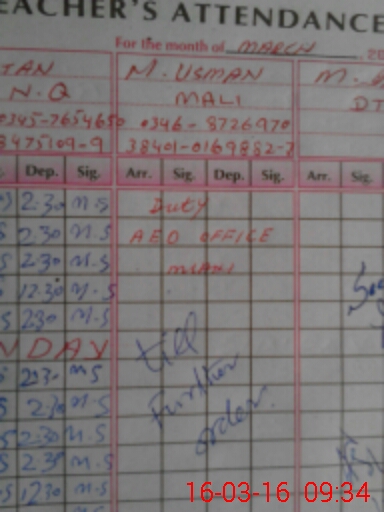 EACHER'S ATTENDANCE
For the month of MARCH 20
TAN M. USMAN M.
N.Q MALI DT
0345-7654650 0346-8726970
8475109-9 38401-0169882-3
Dep. Sig. Arr. Sig. Dep. Sig. Arr. Sig.
2:30 M.S Duty
2:30 M.S AEO OFFICE
2:30 M.S MIANI
12:30 M.S
230 M.S till
NDAY
2:30 M.S Further
2:30 M.S
2:30 M.S order.
2:30 M.S
1230 M.S
16-03-16 09:34